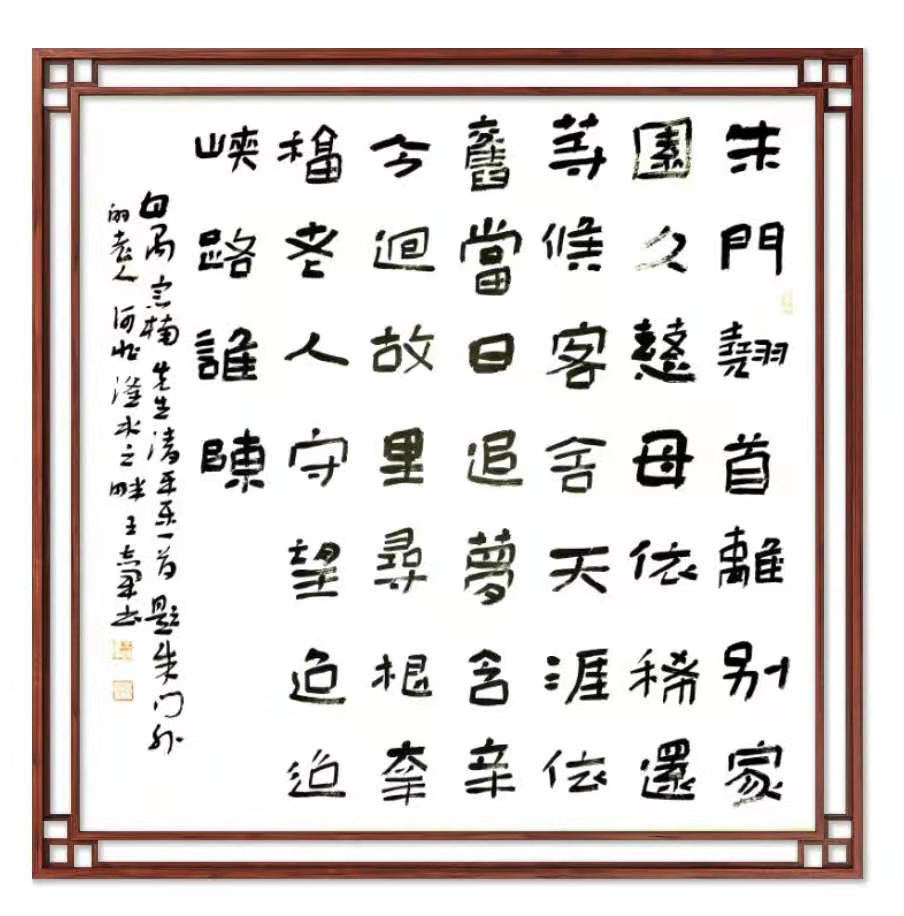 朱門翹首離別家
園久慈母依稀還
等候客舍天涯依
舊當日追夢含辛
今迴故里尋根
老人守望迢迢
峽路誰陳
宗楠先生清平乐一首 题朱门外
的老人 河北滏水之畔 王